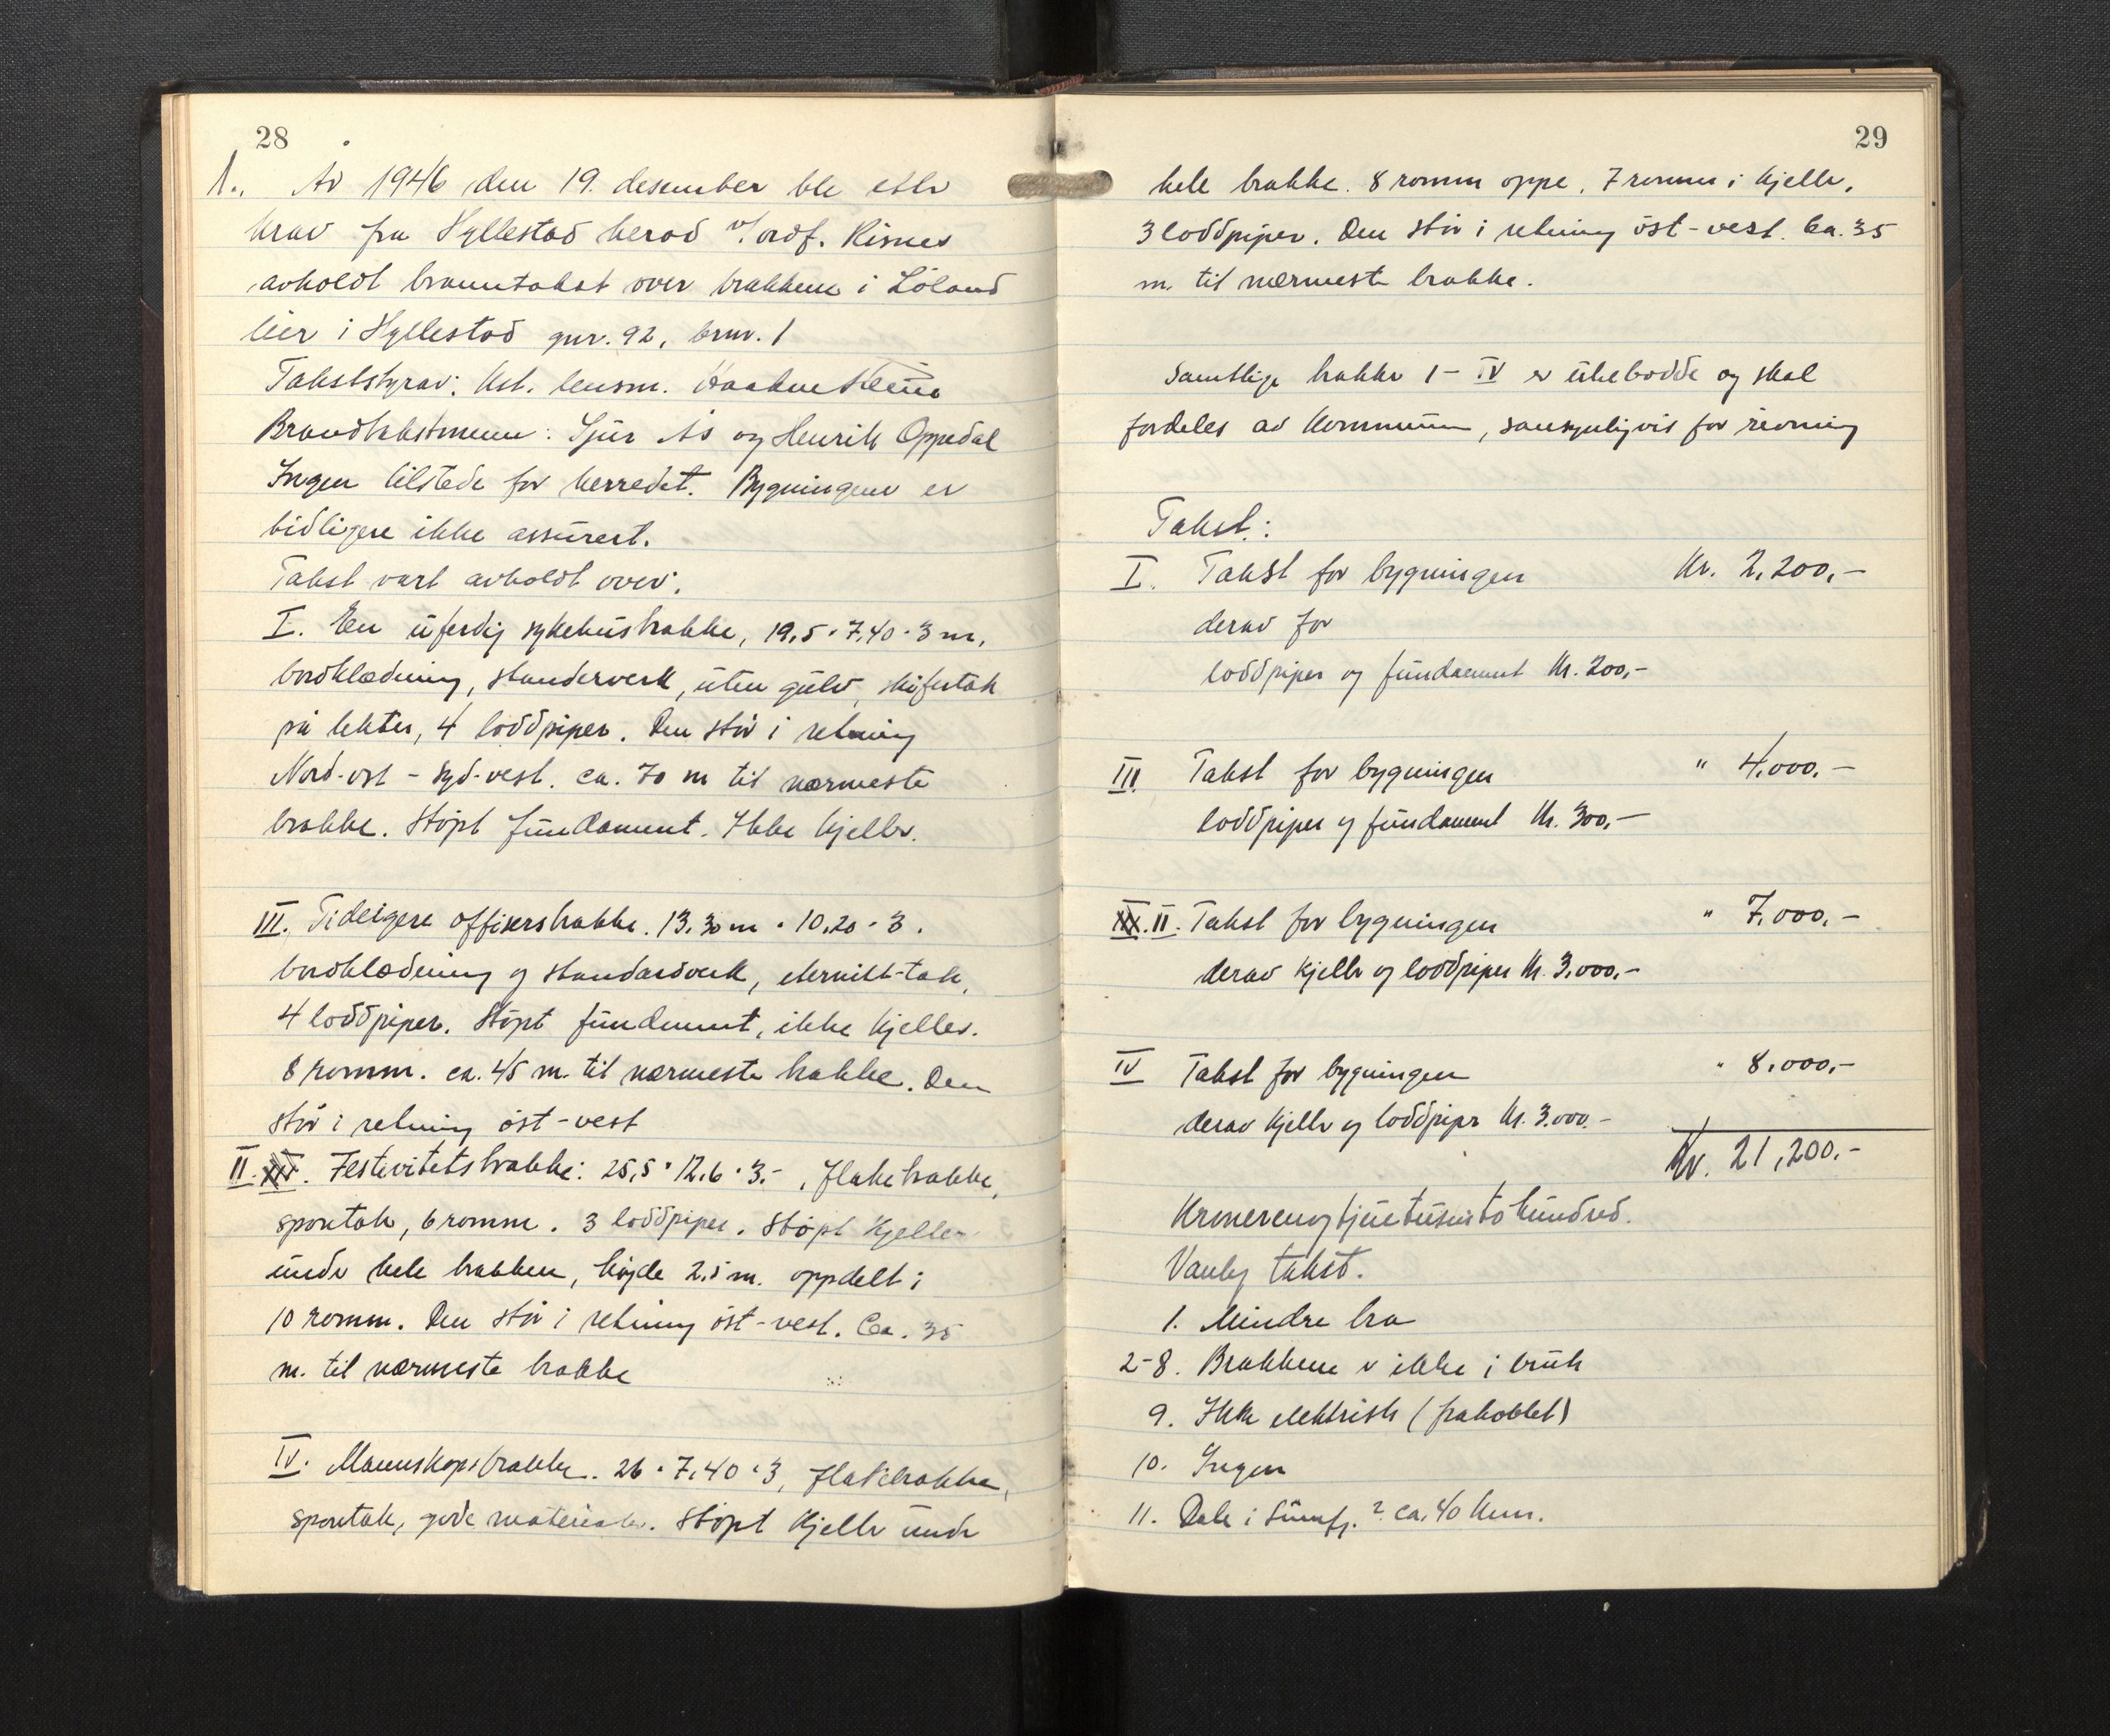 28
1. År 1946 den 19. desember ble etter
krav fra Hyllestad herad v/ordf. Risnes
avholdt branntakst over brakkene i Löland
leir i Hyllestad gnr. 92, brnr. 1
Takststyrar: Kst. lensm.
Brandtakstmenn: Sjur Ås og Henrik Oppedal
Ingen tilstede for herredet. Bygningene er
tidligere ikke assurert.
Takst vart avholdt over:
I. En uferdig sykehusbrakke, 19,5 · 7,40 · 3 m,
bordklædning, standerverk, uten gulv, skifertak
på lekter, 4 loddpiper. Den står i retning
Nord-ost - Syd-vest. ca. 70 m til nærmeste
brakke. Støpt fundament. Ikke kjeller.
III. Tideligere offisersbrakke. 13,30 m · 10,20 · 3.
bordklædning og standardverk, eternitt-tak,
4 loddpiper. Støpt fundament, ikke kjeller.
8 romm. ca. 45 m. til nærmeste brakke. Den
står i retning öst-vest
II. Festivitetsbrakke: 25,5 · 12,6 · 3.-, flakebrakke,
spontak, 6 romm. 3 loddpiper. Støpt kjeller
under hele brakken, høyde 2,5 m. oppdelt i
10 romm. Den står i retning öst-vest. Ca. 35
m. til nærmeste brakke
IV. Mannskapsbrakke. 26 · 7,40 · 3, flakebrakke,
spontak, gode materialer. Støpt kjeller under
29
hele brakke. 8 romm oppe, 7 romm i kjeller,
3 loddpiper. Den står i retning öst-vest. Ca. 35
m. til nærmeste brakke.
Samtlige brakker I - IV er ubebodde og skal
fordeles av kommunen, sansynligvis for rivning
Takst:
I. Takst for bygningen Kr. 2,200,-
derav for
loddpiper og fundament Kr. 200,-
III Takst for bygningen " 4.000,-
loddpiper og fundament Kr. 300,-
II. Takst for bygningen " 7.000,-
derav kjeller og loddpiper Kr. 3.000,-
IV Takst for bygningen " 8.000,-
derav kjeller og loddpiper Kr. 3.000.-
Kr. 21,200.-
Kronerenogtjuetusentohundred.
Vanlig takst.
1. Mindre bra
2-8. Brakkene er ikke i bruk
9. Ikke elektrisk (frakoblet)
10. Ingen
11. Dale i Sunnfj. ? ca. 40 km.